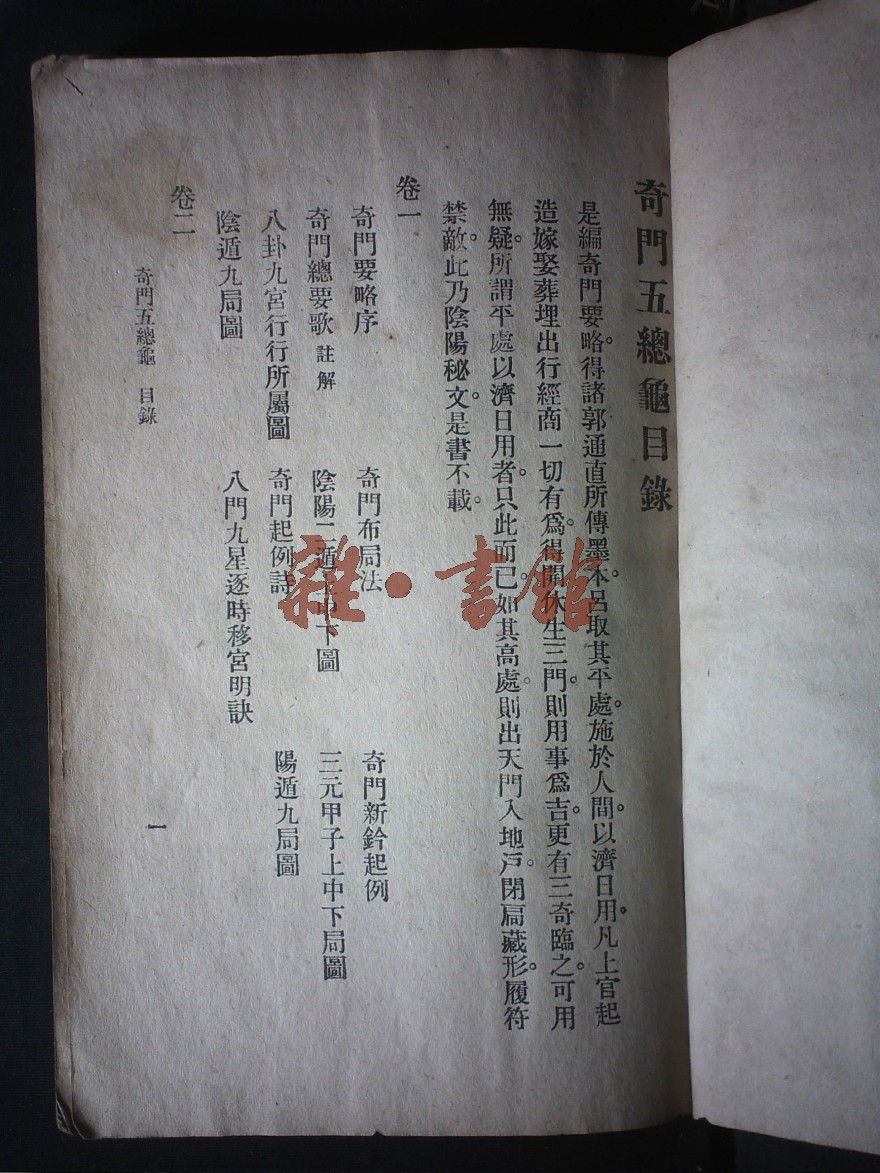 奇門五總龜目錄
是編奇門要略。得諸郭通直所傳墨本。呂取其平處。施於人間。以濟日用。凡上官起
造嫁娶葬埋出行經商一切有爲。得開休生三門。則用事爲吉。更有三奇臨之。可用
無疑。所謂平處以濟日用者。只此而已。如其高處。則出天門入地戶。閉局藏形。履符
禁敵。此乃陰陽秘文。是書不載。
卷一
奇門要略序 奇門布局法 奇門新鈐起例
奇門總要歌 註解 陰陽二遁上中下圖 三元甲子上中下局圖
八卦九宮行行所屬圖 奇門起例詩 陽遁九局圖
陰遁九局圖 八門九星逐時移宮明訣
卷二
奇門五總龜 目錄
一
雜·書館